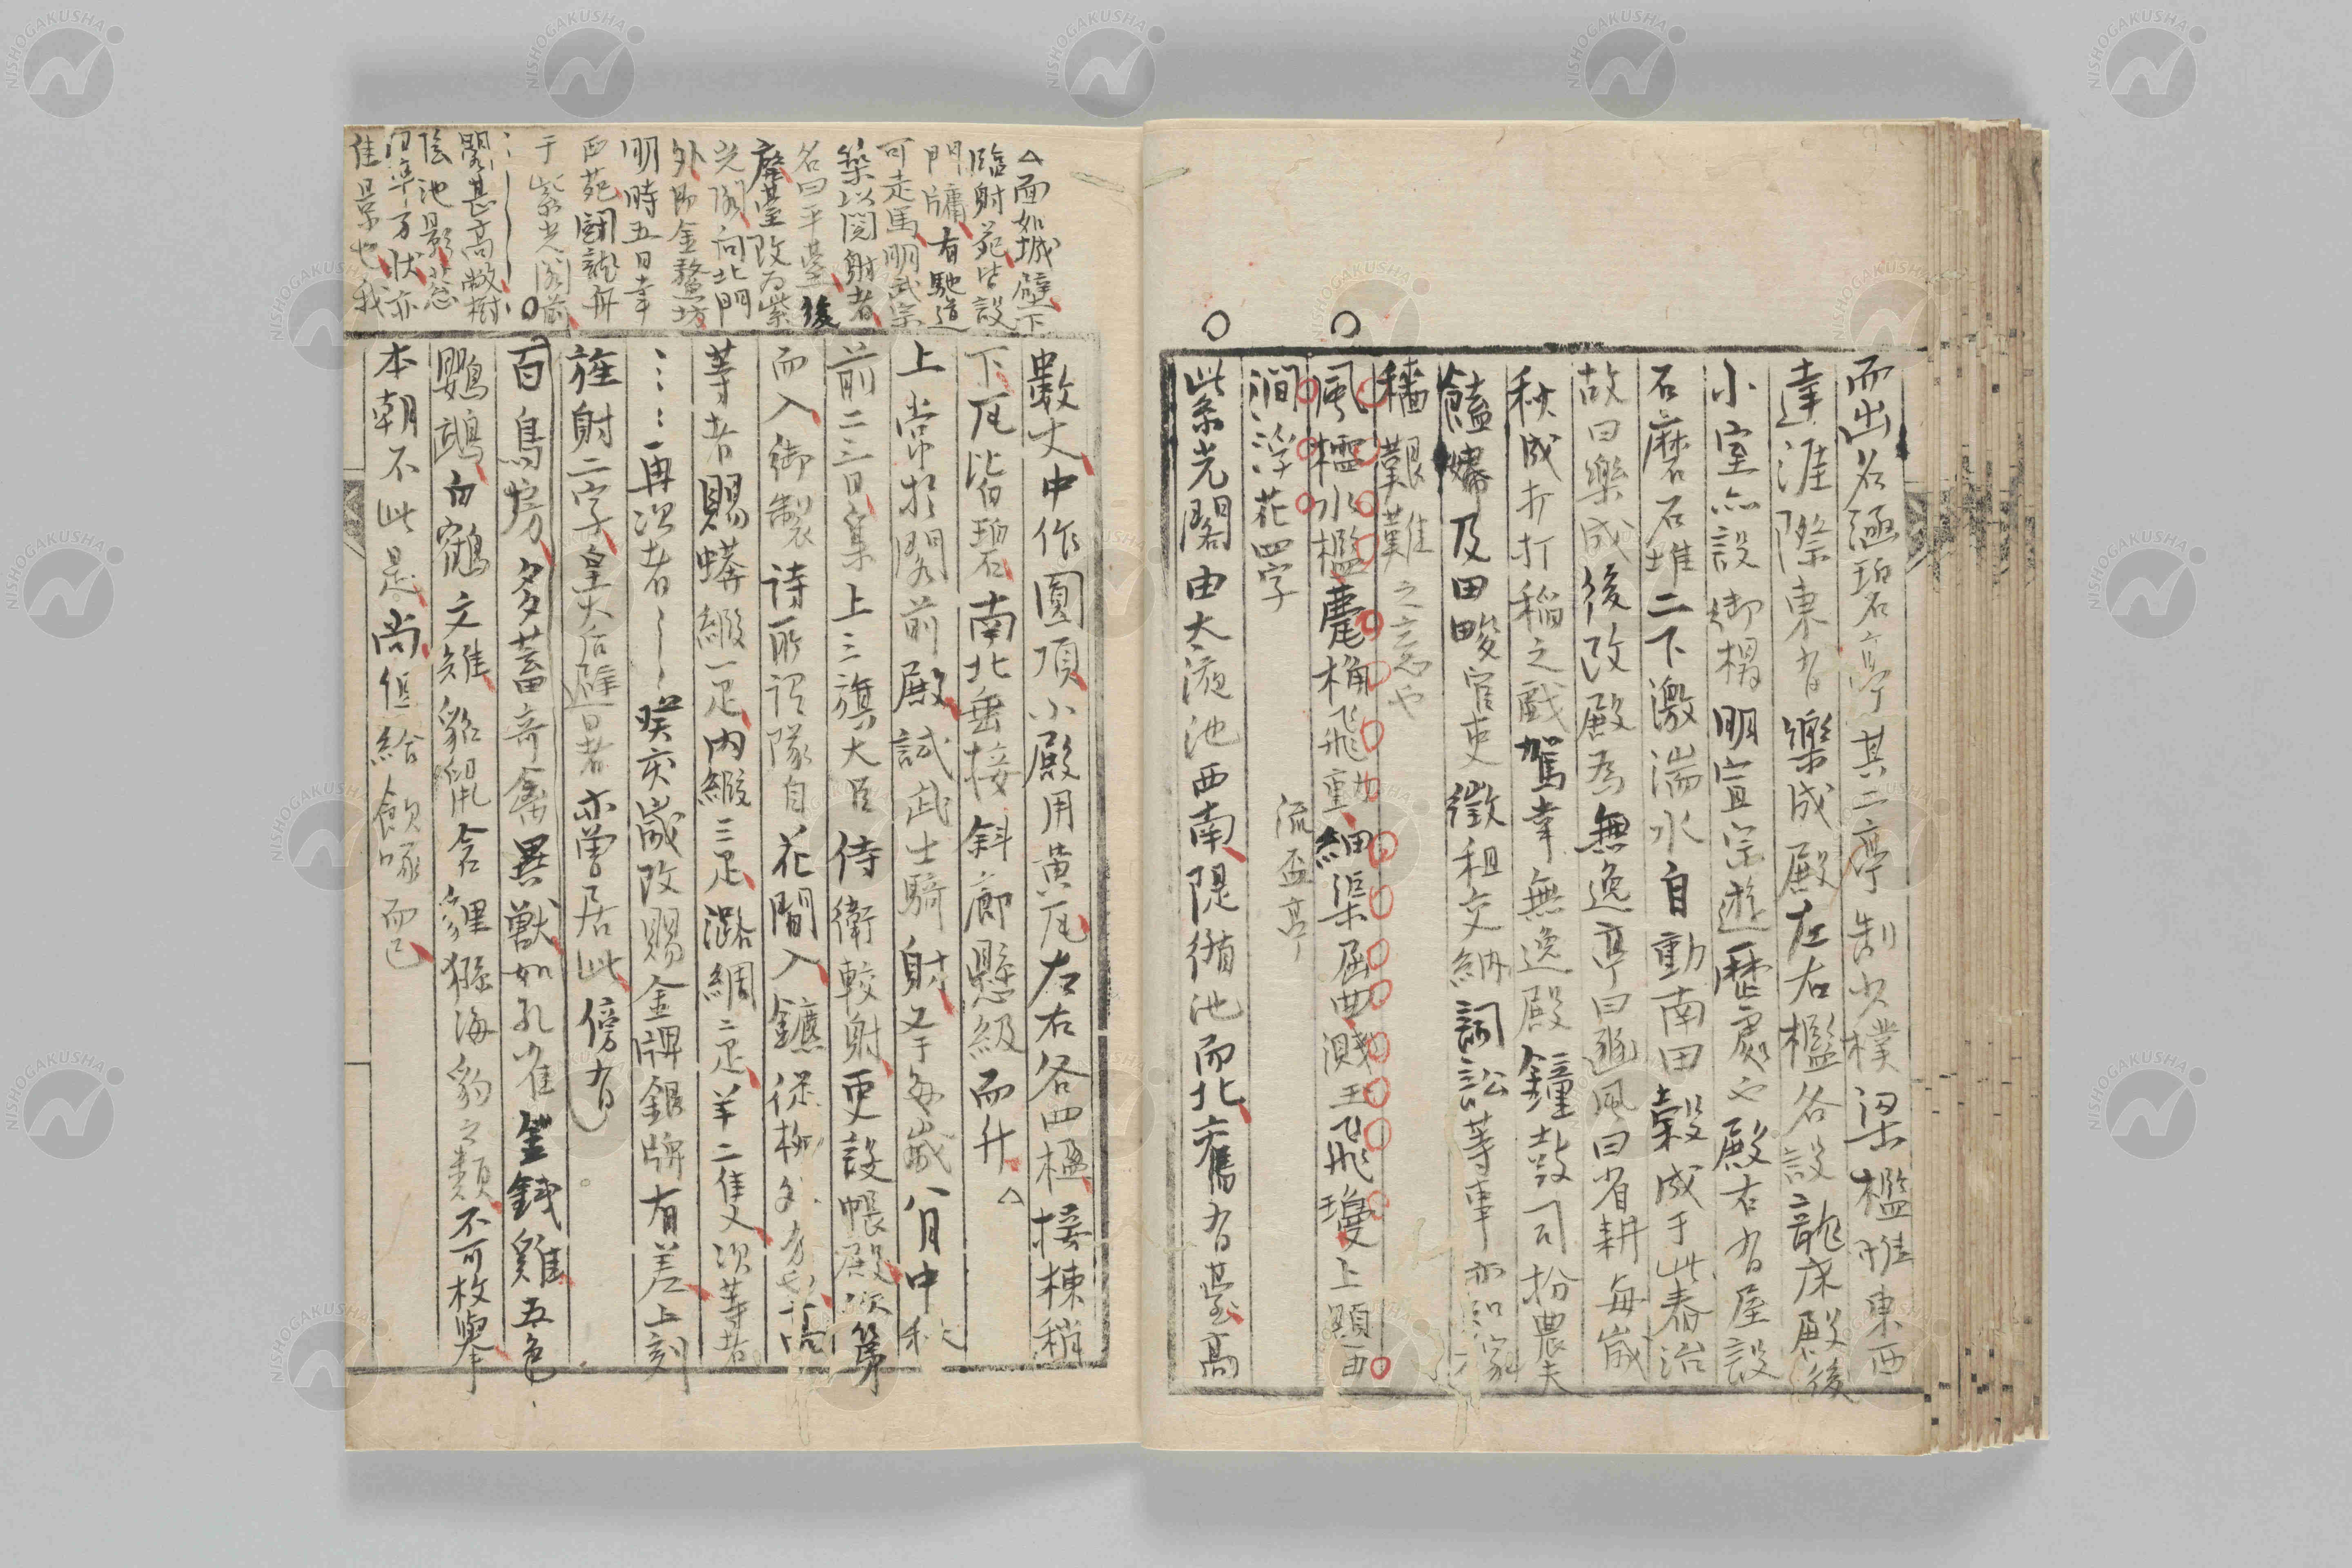 而出名涵碧亭其二亭制少樸梁檻惟東西
達涯際東有樂成殿左右檻各設龍床殿後
小室亦設御榻明宣宗遊歷處也殿右有屋設
石磨石堆二下激湍水自動南田穀成于此舂治
故曰樂成後改殿為無逸亭曰豳風曰省耕每歲
秋成打打稻之戲駕幸無逸殿鐘鼓司扮農夫
饁婦及田畯官吏徵租交納詞訟等事亦知家
穡艱難之意也
風櫺水檻麀桷飛動細渠屈曲濺玉飛瓊上顯曲
澗浮花四字
流盃亭
紫光閣由大液池西南隄循池而北夾舊有臺高
△面如城壁下
臨射苑皆設
門牗有馳道
可走馬明武宗
築以閱射者
名曰平臺後
廢臺改為紫
光閣向北門
外即金鰲坊
明時五日幸
西苑鬪龍舟
于紫光閣前
閣甚高敞樹
陰池影葱
佳景也我
數丈中作圓頂小殿用黃瓦左右各四楹接棟稍
下瓦皆碧南北垂接斜廊懸級而升△
上常於閣前殿試武士騎射又于每歲八月中秋
前二三日集上三旗大臣侍衛較射更設帳殿次第
而入御製詩所謂隊自花間入鑣從柳外
等者賜蟒緞一疋內緞三疋潞綢二疋羊二隻次等者
再次者癸亥歲改賜金牌銀牌有差上刻
旌射二字皇太后避暑亦嘗居此傍有
百鳥房多蓄奇禽異獸如孔雀金錢雞五色
鸚鵡白鶴文雉貂鼠舍狸猻海豹之類不可枚舉
本朝不此是尚但給飲啄而已